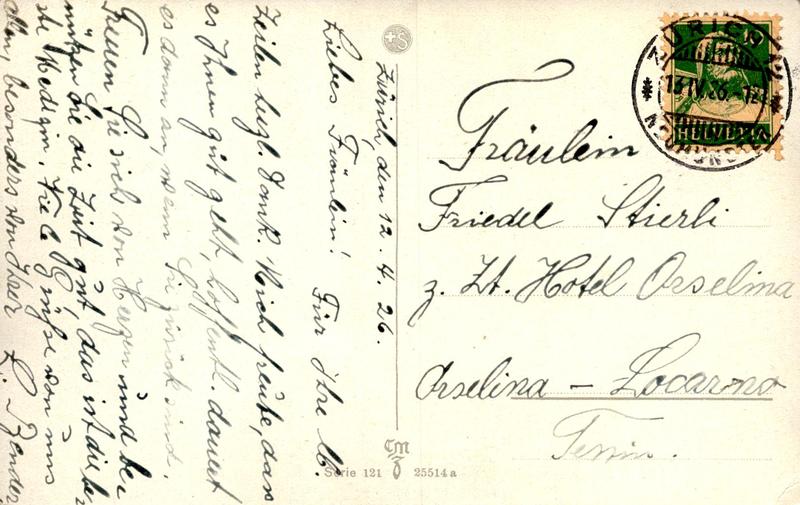 Zürich, den 12. 4. 26.
Liebes Fräulein! Für Ihre lb.
Zeilen herzl. Dank. Mich freute, dass
es Ihnen gut geht, hoffentl. dauert
es dann an, wenn Sie zurück sind.
Freuen Sie sich von Herzen und be
nützen Sie die Zeit gut, das ist die be
ste Medizin. Viele Grüsse von uns
allen, besonders von Ihrer L. Bender
Fräulein
Friedel Stierli
z. Zt. Hotel Orselina
Orselina – Locarno
Tessin.
ZÜRICH
13 IV. 26.
HELVETIA
NEUMÜNSTER
Serie 121
25514a